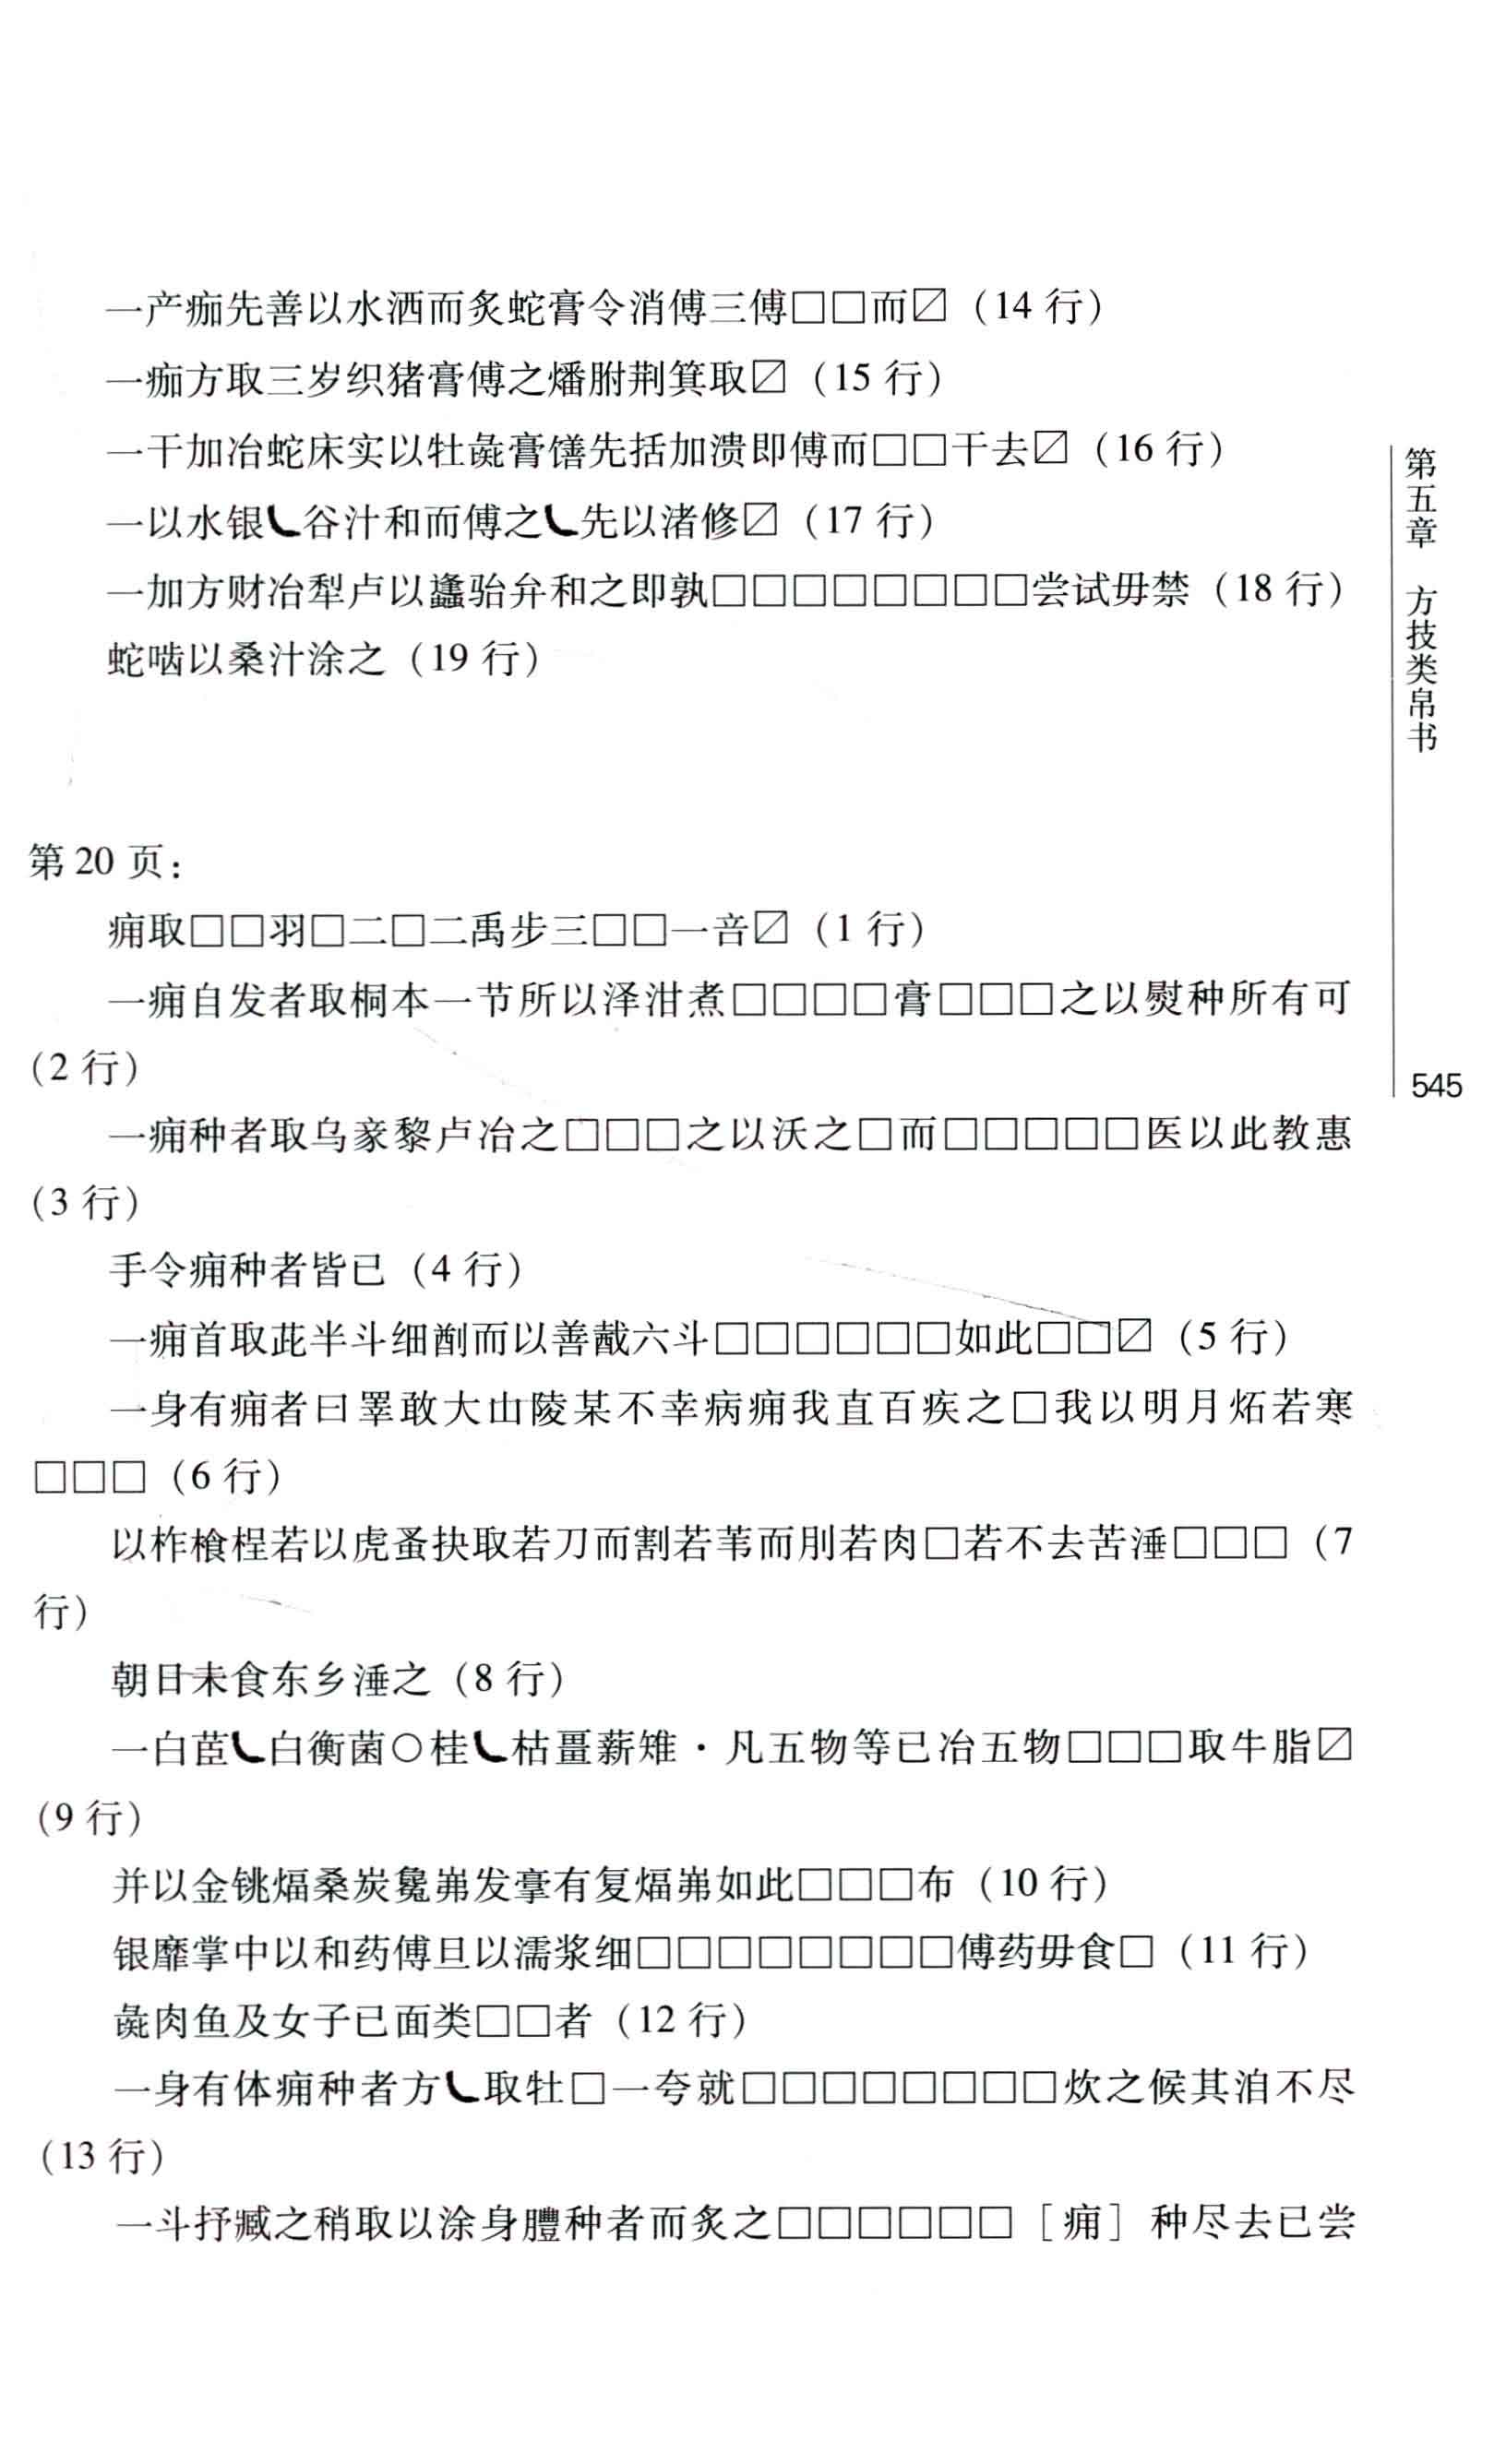 一产痂先善以水洒而炙蛇膏令消傅三傅□□而☑（14 行）
一痂方取三岁织猪膏傅之燔胕荆箕取☑（15 行）
一干加冶蛇床实以牡彘膏饍先括加溃即傅而□□干去☑（16 行）
一以水银㇄谷汁和而傅之㇄先以渚修☑（17 行）
一加方财冶犁卢以蠭骀弁和之即孰□□□□□□□□尝试毋禁（18 行）
蛇啮以桑汁涂之（19 行）
第 20 页：
痈取□□羽□二□二禹步三□□一音☑（1 行）
一痈自发者取桐本一节所以泽泔煮□□□□膏□□□之以熨种所有可
（2 行）
一痈种者取乌豙黎卢冶之□□□之以沃之□而□□□□□医以此教惠
（3 行）
手令痈种者皆已（4 行）
一痈首取茈半斗细削而以善戴六斗□□□□□□如此□□☑（5 行）
一身有痈者曰睪敢大山陵某不幸病痈我直百疾之□我以明月炻若寒
□□□（6 行）
以柞槍桯若以虎蚤抉取若刀而割若苇而刖若肉□若不去苦涶□□□（7
行）
朝日未食东乡涶之（8 行）
一白茝㇄白衡菌○桂㇄枯畺薪雉·凡五物等已冶五物□□□取牛脂☑
（9 行）
并以金铫煏桑炭毚弗发䯨有复煏弗如此□□□布（10 行）
银靡掌中以和药傅旦以濡浆细□□□□□□□□傅药毋食□（11 行）
彘肉鱼及女子已面类□□者（12 行）
一身有体痈种者方㇄取牡□一夸就□□□□□□□□炊之候其洎不尽
（13 行）
一斗抒臧之稍取以涂身軆种者而炙之□□□□□□［痈］种尽去已尝
第五章 方技类帛书
545